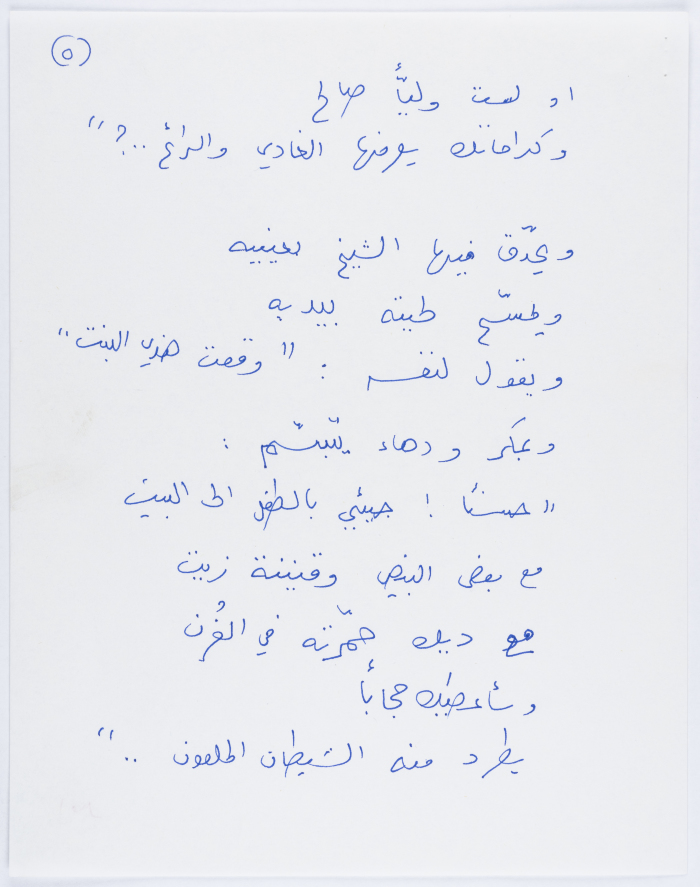 ٥
او لست وليًّأ صالح
وكراماتك يعرفها الغادي والرائح ..؟"
ويحدّق فيها الشيخ بعينيه
ويمسّح لحيته بيديه
ويقول لنفسه : " وقعت هذي البنت "
وبمكر ودهاء يتبسّم :
" حسنًا ! جيئي بالطفل الى البيت
مع بعض البيض وقنينة زيت
مع ديك حمّرته في الفُرن
وسأعطيك حجابًا
يطرد منه الشيطان الملعون .. "